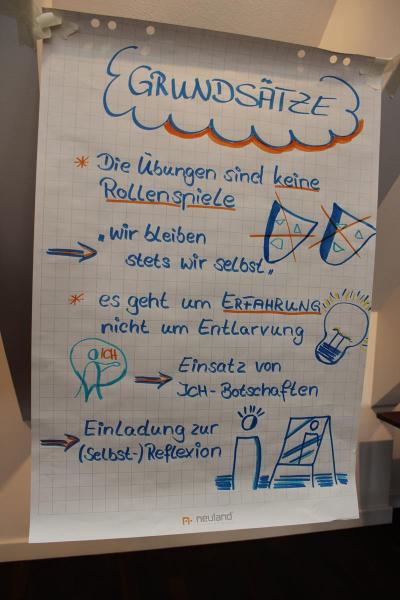 GRUNDSÄTZE
* Die Übungen sind keine
Rollenspiele
"wir bleiben
stets wir selbst"
* es geht um ERFAHRUNG
nicht um Entlarvung
ICH
Einsatz von
ICH-Botschaften
Einladung zur
(Selbst-)Reflexion
neuland